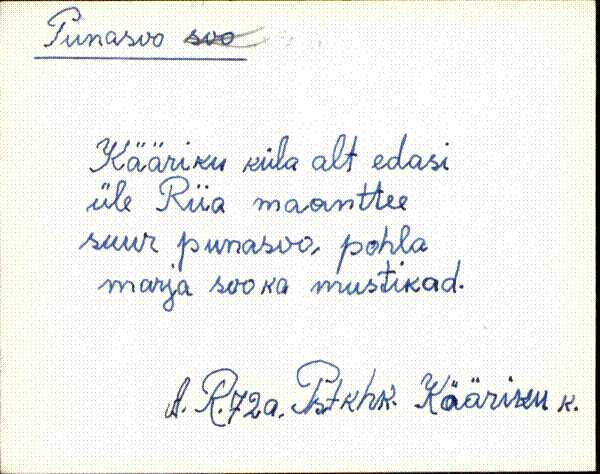 Punasoo soo
Kääriku küla alt edasi
üle Riia maanttee
suur punasoo, pohla
marja soo ka mustikad.
A. R. 72a. Pst khk. Kääriku k.